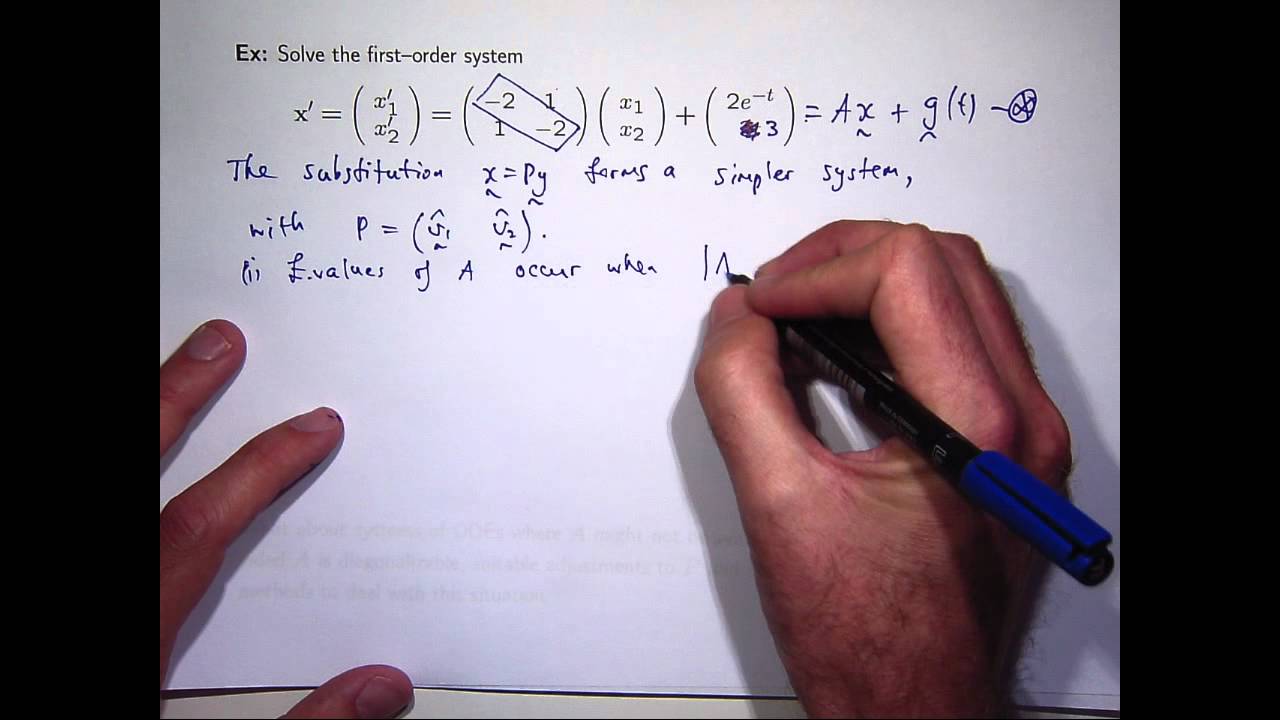 Ex: Solve the first–order system
x′ = ( x′₁ x′₂ ) = ( −2 1 1 −2 ) ( x₁ x₂ ) + ( 2e⁻ᵗ 3 ) = Ax + g(t) –⊛
The substitution x = Py forms a simpler system,
with P = ( v̂₁ v̂₂ ).
(i) E.values of A occur when |A
about systems of ODEs where A might not
A is diagonalizable, suitable adjustments to
methods to deal with this situation